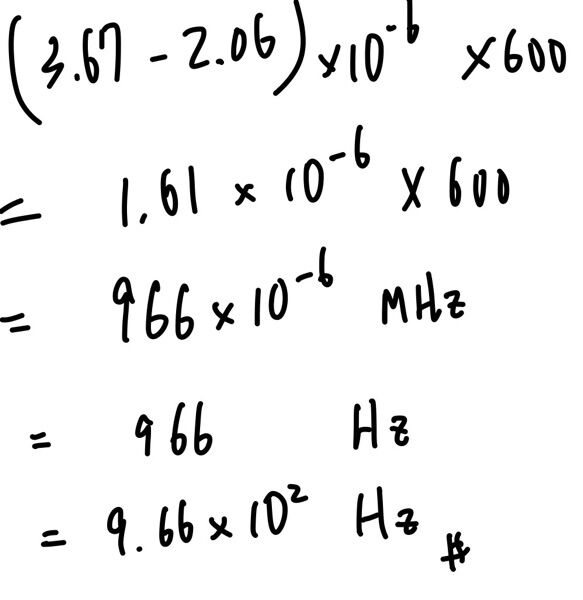 (3.67 - 2.06) × 10⁻⁶ × 600
= 1.61 × 10⁻⁶ × 600
= 966 × 10⁻⁶ MHz
= 966 Hz
= 9.66 × 10² Hz #